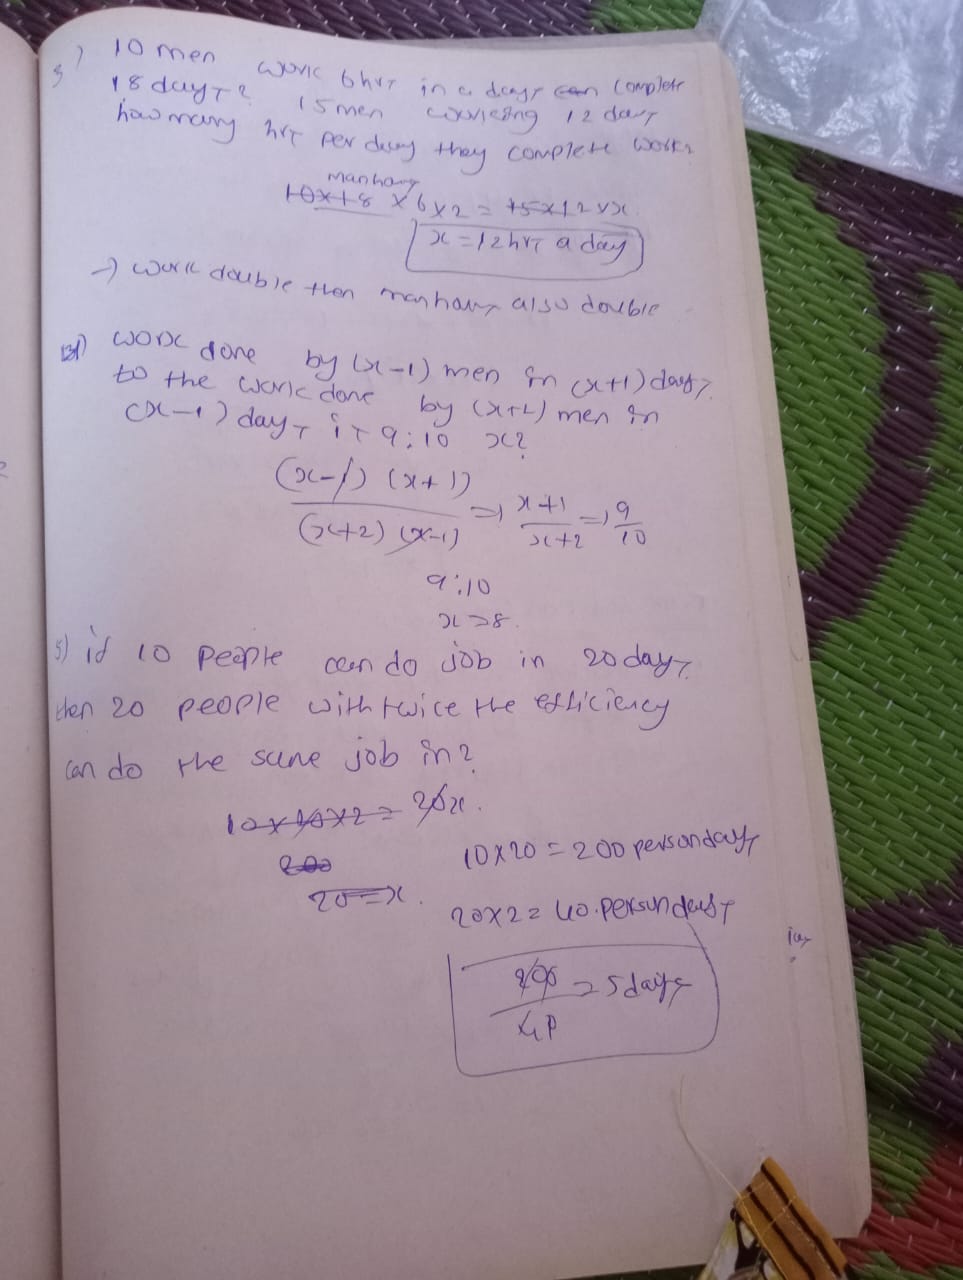 10 men work 6 hrs in a days can complete
18 days? 15 men working 12 days
how many hrs per day they complete work?
manhours
10x18 x 6 x 2 = 15x12 x x
x = 12 hrs a day
→ work double then manhours also double
work done by (x-1) men in (x+1) days
to the work done by (x+2) men in
(x-1) days is 9:10 x?
(x-1) (x+1) / (x+2) (x-1) => x+1 / x+2 => 9/10
9:10
x=8
5) if 10 people can do job in 20 days
then 20 people with twice the efficiency
can do the same job in?
10x10x2 = 20x.
200
20=x.
10x20 = 200 persondays
20x2 = 40 persondays
200/40 = 5 days